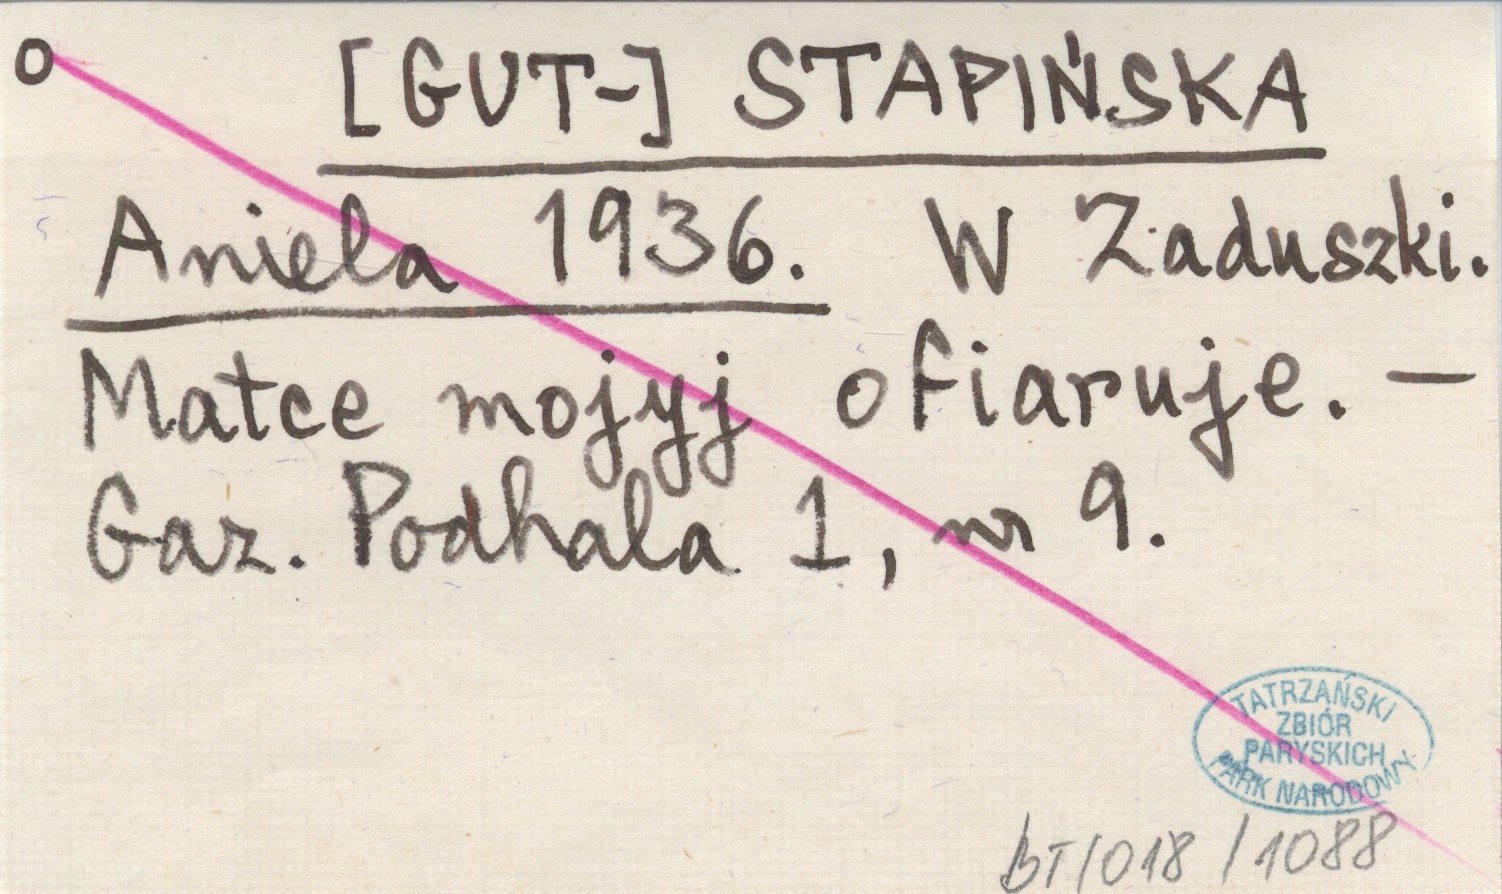 o [GUT-] STAPIŃSKA
Aniela 1936. W Zaduszki.
Matce mojyj ofiaruje. —
Gaz. Podhala 1, nr 9.
TATRZAŃSKI
ZBIÓR
PARYSKICH
PARK NARODOWY
BT/018/1088